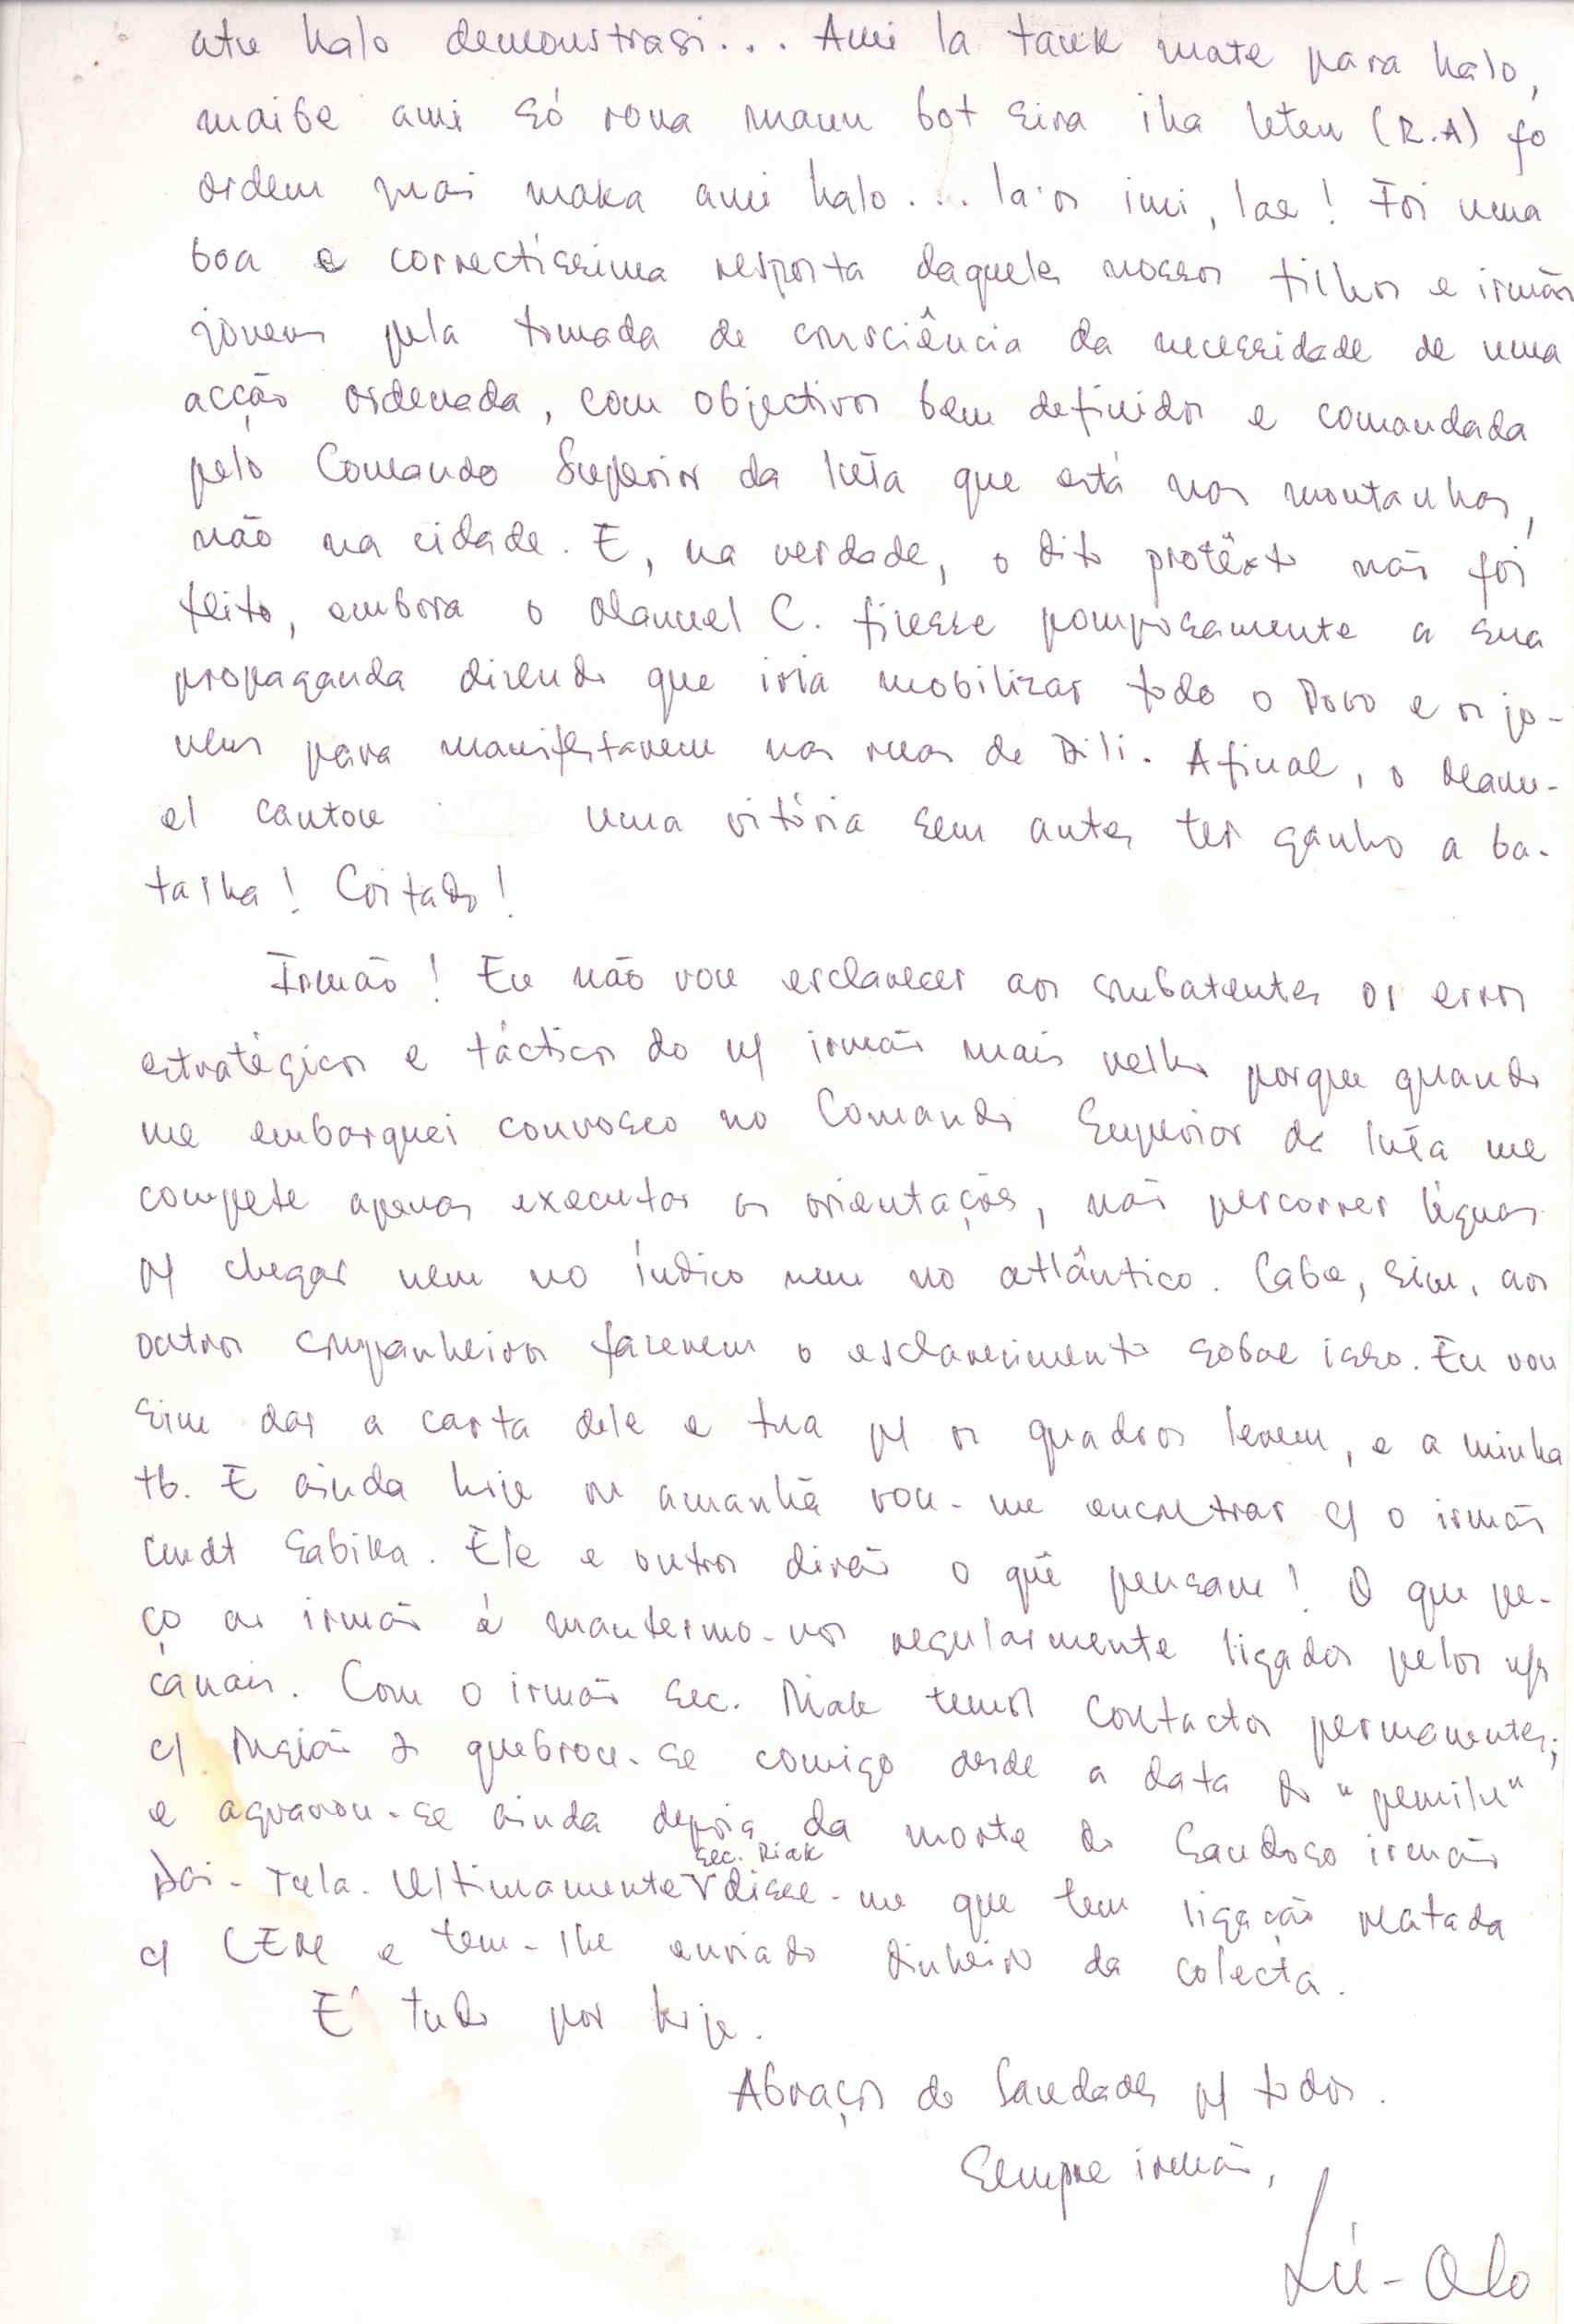 atu halo demonstrasi... Ami la tauk mate para halo,
maibe ami só rona maun bot sira iha leten (R.A) fo
ordem mai maka ami halo... la'os imi, lae! Foi uma
boa e correctíssima resposta daqueles nossos filhos e irmãos
jovens pela tomada de consciência da necessidade de uma
acção ordenada, com objectivos bem definidos e comandada
pelo Comando Superior da luta que está nas montanhas,
não na cidade. E, na verdade, o dito protêsto não foi
feito, embora o Manuel C. fizesse pomposamente a sua
propaganda dizendo que iria mobilizar todo o Povo e os jo-
vens para manifestarem nas ruas de Dili. Afinal, o Manu-
el cantou uma vitória sem antes ter ganho a ba-
talha! Coitado!
Irmão! Eu não vou esclarecer aos combatentes os erros
estratégicos e tácticos do n/ irmão mais velho porque quando
me embarquei convosco no Comando Superior da luta me
compete apenas executar as orientações, não percorrer léguas
p/ chegar nem no índico nem no atlântico. Cabe, sim, aos
outros companheiros fazerem o esclarecimento sobre isso. Eu vou
sim dar a carta dele e tua p/ os quadros lerem, e a minha
tb. E ainda hoje ou amanhã vou-me encontrar c/ o irmão
cmdt Sabika. Ele e outros dirão o quê pensam! O que pe-
ço ao irmão é mantermo-nos regularmente ligados pelos n/s
canais. Com o irmão Sec. Riak temos contactos permanentes;
c/ Região 2 quebrou-se comigo desde a data do "pemilu"
e agravou-se ainda depois da morte do saudoso irmão
Dai-Tula. Ultimamente Sec. Riak disse-me que tem ligação reatada
c/ CEM e tem-lhe enviado dinheiro da colecta.
É tudo por hoje.
Abraços de Saudades p/ todos.
Sempre irmão,
Lú-Olo